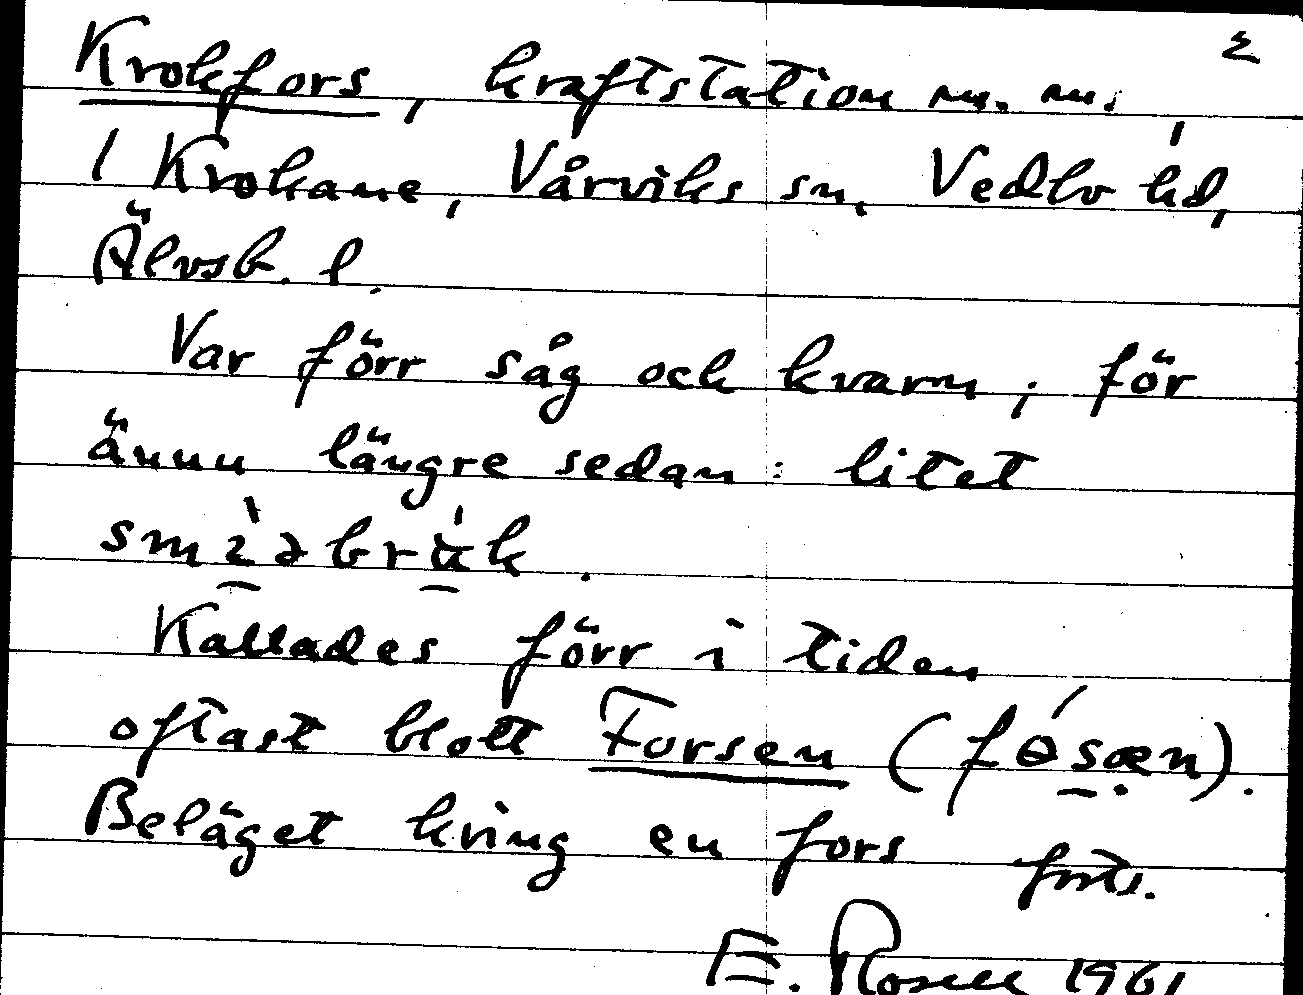 2
Krokfors, kraftstation m. m.,
i Krokane, Vårviks sn, Vedbo hd,
Älvsb. l.
Var förr såg och kvarn; för
ännu längre sedan: litet
smìdbrùk.
Kallades förr i tiden
oftast blott Forsen (fɵ́sæn).
Beläget kring en fors forts.
E. Rosell 1961